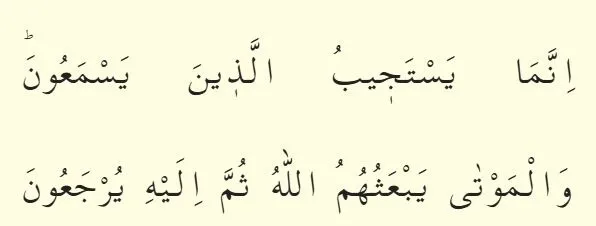 اِنَّمَا يَسْتَجِيبُ الَّذِينَ يَسْمَعُونَؕ
وَالْمَوْتٰى يَبْعَثُهُمُ اللّٰهُ ثُمَّ اِلَيْهِ يُرْجَعُونَ